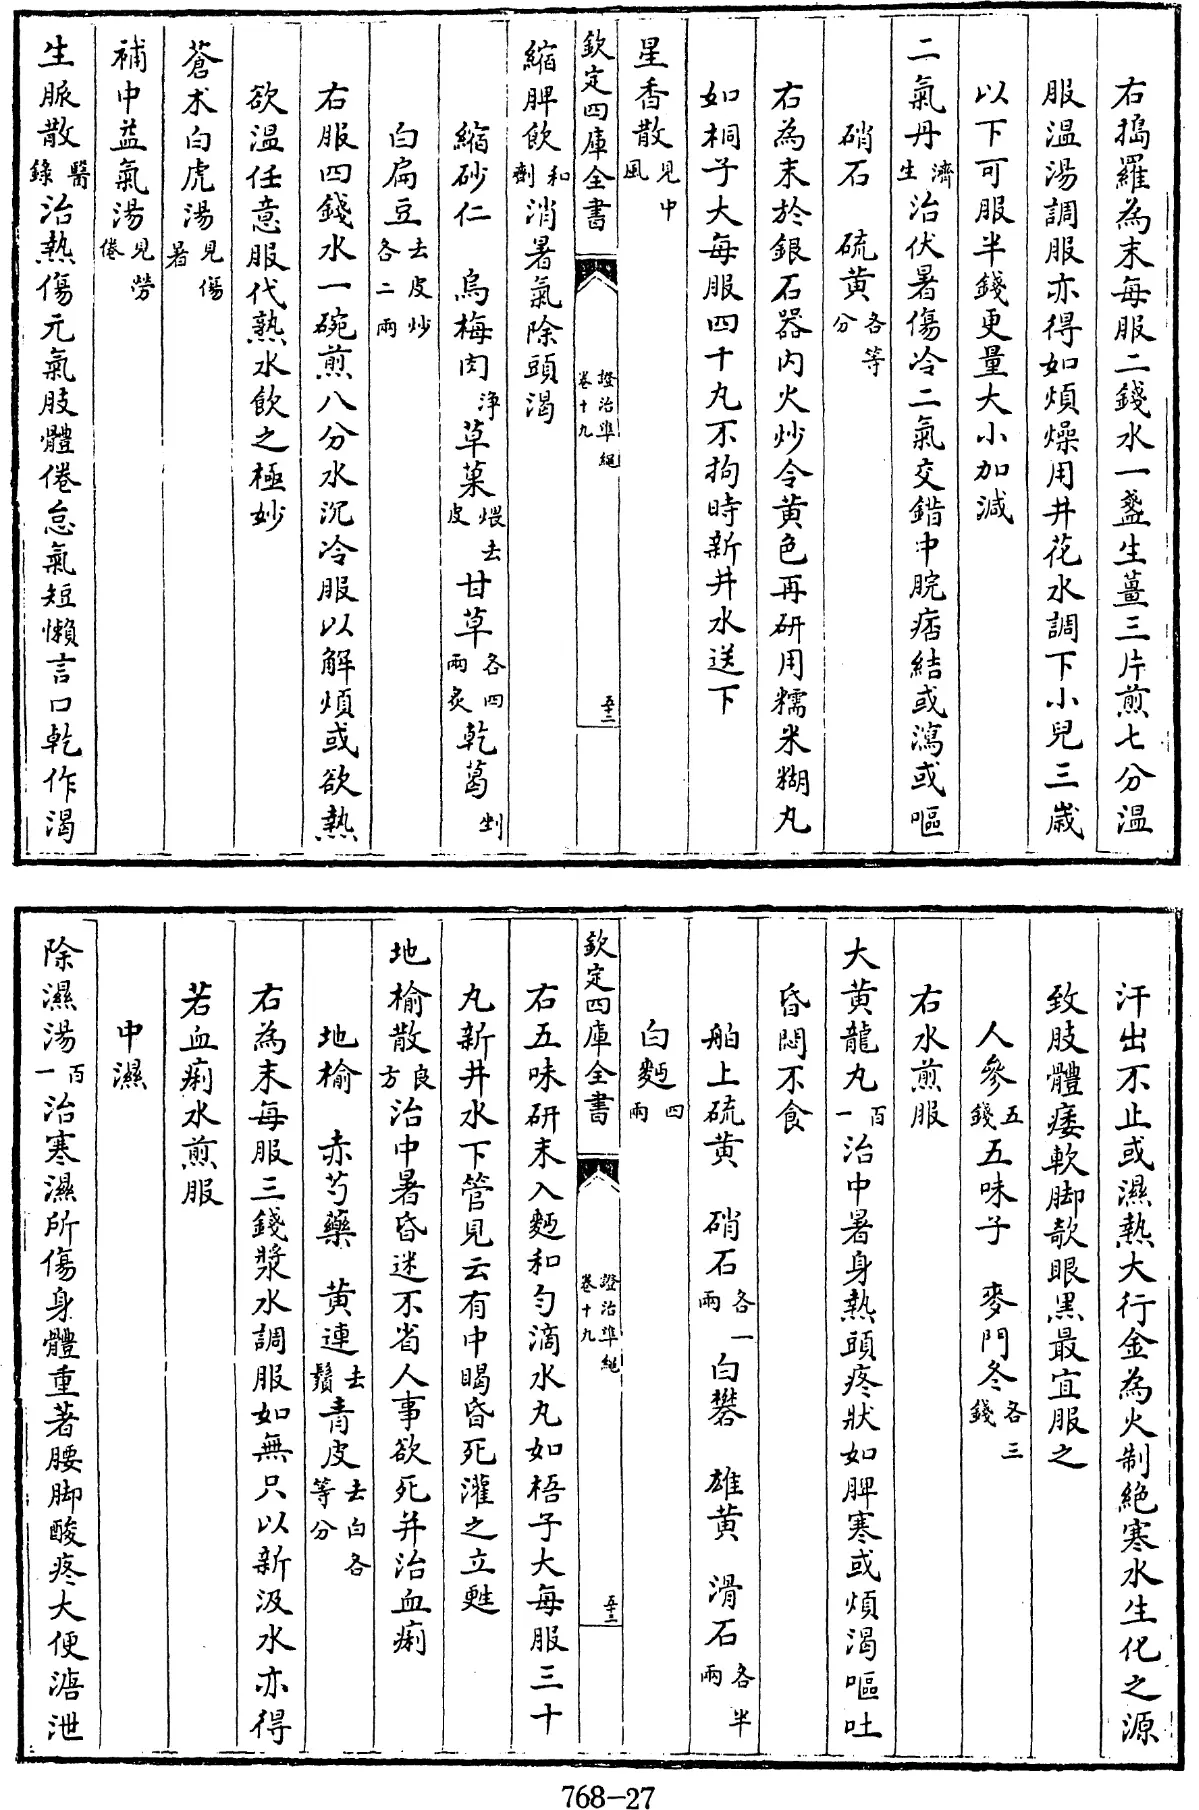 右搗羅為末每服二錢水一盞生薑三片煎七分温
服温湯調服亦得如煩燥用井花水調下小兒三歲
以下可服半錢更量大小加減
二氣丹濟生治伏暑傷冷二氣交錯中脘痞結或瀉或嘔
硝石 硫黄各等分
右為末於銀石器内火炒令黄色再研用糯米糊丸
如桐子大每服四十丸不拘時新井水送下
星香散見中風
欽定四庫全書 證治準繩卷十九 五十二
縮脾飲和劑消暑氣除頭渴
縮砂仁 烏梅肉浄草菓煨去皮甘草各四兩炙乾葛剉
白扁豆去皮炒各二兩
右服四錢水一碗煎八分水沉冷服以解煩或欲熱
欲温任意服代熱水飲之極妙
蒼术白虎湯見傷暑
補中益氣湯見勞倦
生脈散醫錄治熱傷元氣肢體倦怠氣短懶言口乾作渴
汗出不止或濕熱大行金為火制絶寒水生化之源
致肢體痿軟脚欹眼黒最宜服之
人參五錢五味子 麥門冬各三錢
右水煎服
大黄龍丸百一治中暑身熱頭疼狀如脾寒或煩渴嘔吐
昏悶不食
舶上硫黄 硝石各一兩白礬 雄黄 滑石各半兩
白麪四兩
欽定四庫全書 證治準繩卷十九 五十二
右五味研末入麪和匀滴水丸如梧子大每服三十
丸新井水下管見云有中暍昏死灌之立甦
地榆散良方治中暑昏迷不省人事欲死并治血痢
地榆 赤芍藥 黄連去鬚青皮去白各等分
右為末每服三錢漿水調服如無只以新汲水亦得
若血痢水煎服
中濕
除濕湯百一治寒濕所傷身體重著腰脚酸疼大便溏泄
768-27